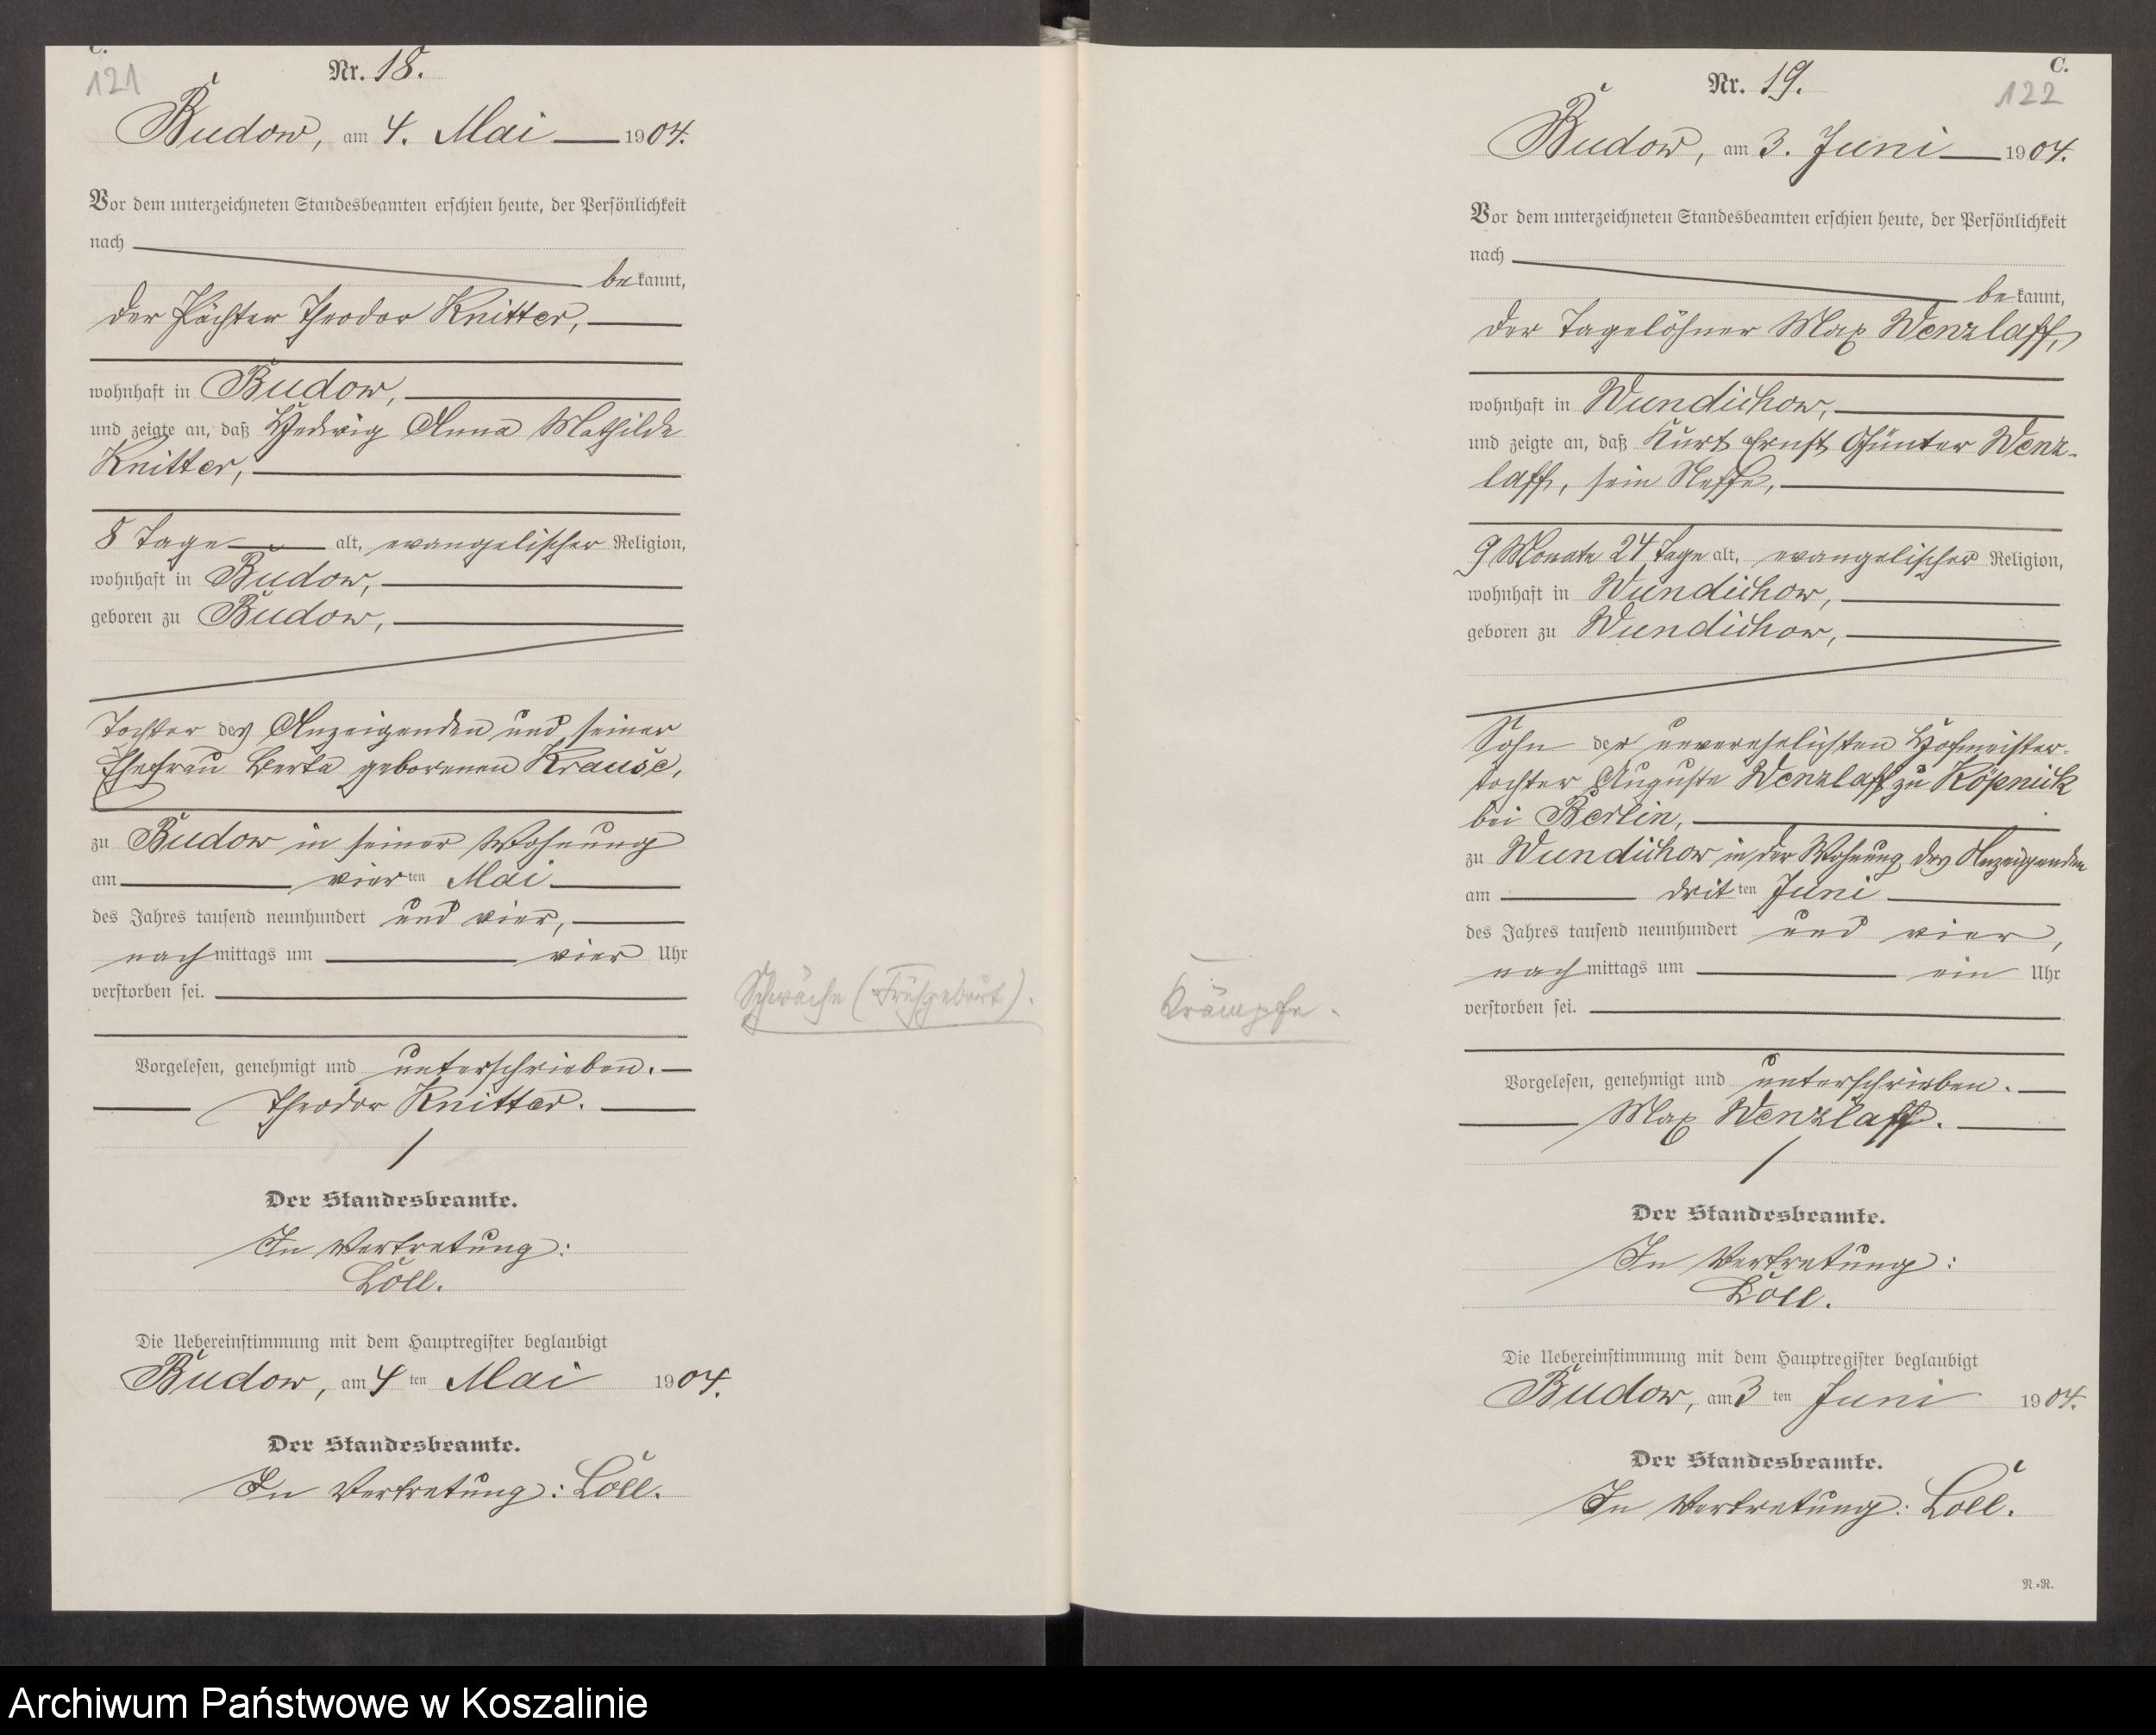 C.
121
Nr. 18.
Budow, am 4. Mai 1904.
Vor dem unterzeichneten Standesbeamten erschien heute, der Persönlichkeit
nach
bekannt,
der Pächter Theodor Knitter,
wohnhaft in Budow,
und zeigte an, daß Hedwig Anna Mathilde
Knitter,
8 Tage alt, evangelischer Religion,
wohnhaft in Budow,
geboren zu Budow,
Tochter des Anzeigenden und seiner
Ehefrau Berta geborenen Krause,
zu Budow in seiner Wohnung
am vierten Mai
des Jahres tausend neunhundert und vier,
nachmittags um vier Uhr
verstorben sei.
Schwäche (Frühgeburt).
Vorgelesen, genehmigt und unterschrieben.
Theodor Knitter.
Der Standesbeamte.
In Vertretung:
Loll.
Die Uebereinstimmung mit dem Hauptregister beglaubigt
Budow, am 4ten Mai 1904.
Der Standesbeamte.
In Vertretung: Loll.
C.
122
Nr. 19.
Budow, am 3. Juni 1904.
Vor dem unterzeichneten Standesbeamten erschien heute, der Persönlichkeit
nach
bekannt,
der Tagelöhner Max Wenzlaff,
wohnhaft in Wundichow,
und zeigte an, daß Kurt Ernst Günter Wenz-
laff, sein Neffe,
9 Monate 24 Tage alt, evangelischer Religion,
wohnhaft in Wundichow,
geboren zu Wundichow,
Sohn der unverehelichten Hofmeister-
tochter Auguste Wenzlaff zu Köpnick
bei Berlin,
zu Wundichow in der Wohnung des Anzeigenden
am dritten Juni
des Jahres tausend neunhundert und vier,
nachmittags um ein Uhr
verstorben sei.
Krämpfe.
Vorgelesen, genehmigt und unterschrieben.
Max Wenzlaff.
Der Standesbeamte.
In Vertretung:
Loll.
Die Uebereinstimmung mit dem Hauptregister beglaubigt
Budow, am 3ten Juni 1904.
Der Standesbeamte.
In Vertretung: Loll.
N=R.
Archiwum Państwowe w Koszalinie